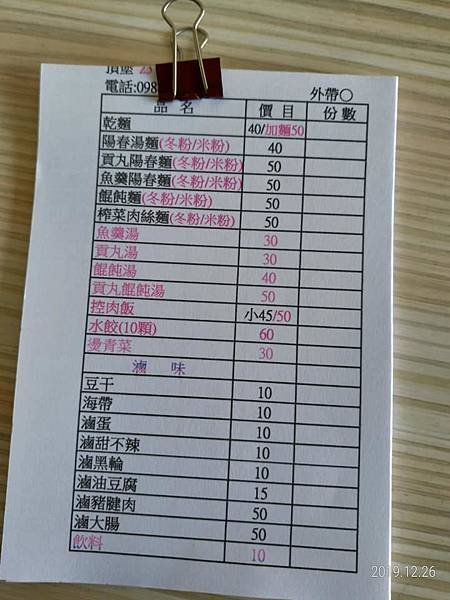 電話:098
外帶○
品名 價目 份數
乾麵 40/加麵50
陽春湯麵(冬粉/米粉) 40
貢丸陽春麵(冬粉/米粉) 50
魚羹陽春麵(冬粉/米粉) 50
餛飩麵(冬粉/米粉) 50
榨菜肉絲麵(冬粉/米粉) 50
魚羹湯 30
貢丸湯 30
餛飩湯 40
貢丸餛飩湯 50
控肉飯 小45/50
水餃(10顆) 60
燙青菜 30
滷味
豆干 10
海帶 10
滷蛋 10
滷甜不辣 10
滷黑輪 10
滷油豆腐 15
滷豬腱肉 50
滷大腸 50
飲料 10
2019.12.26